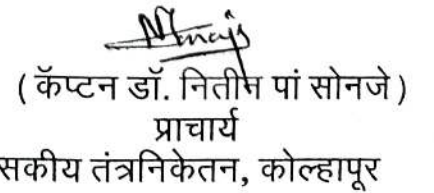 ( कॅप्टन डॉ. नितीन पां सोनजे )
प्राचार्य
सकीय तंत्रनिकेतन, कोल्हापूर